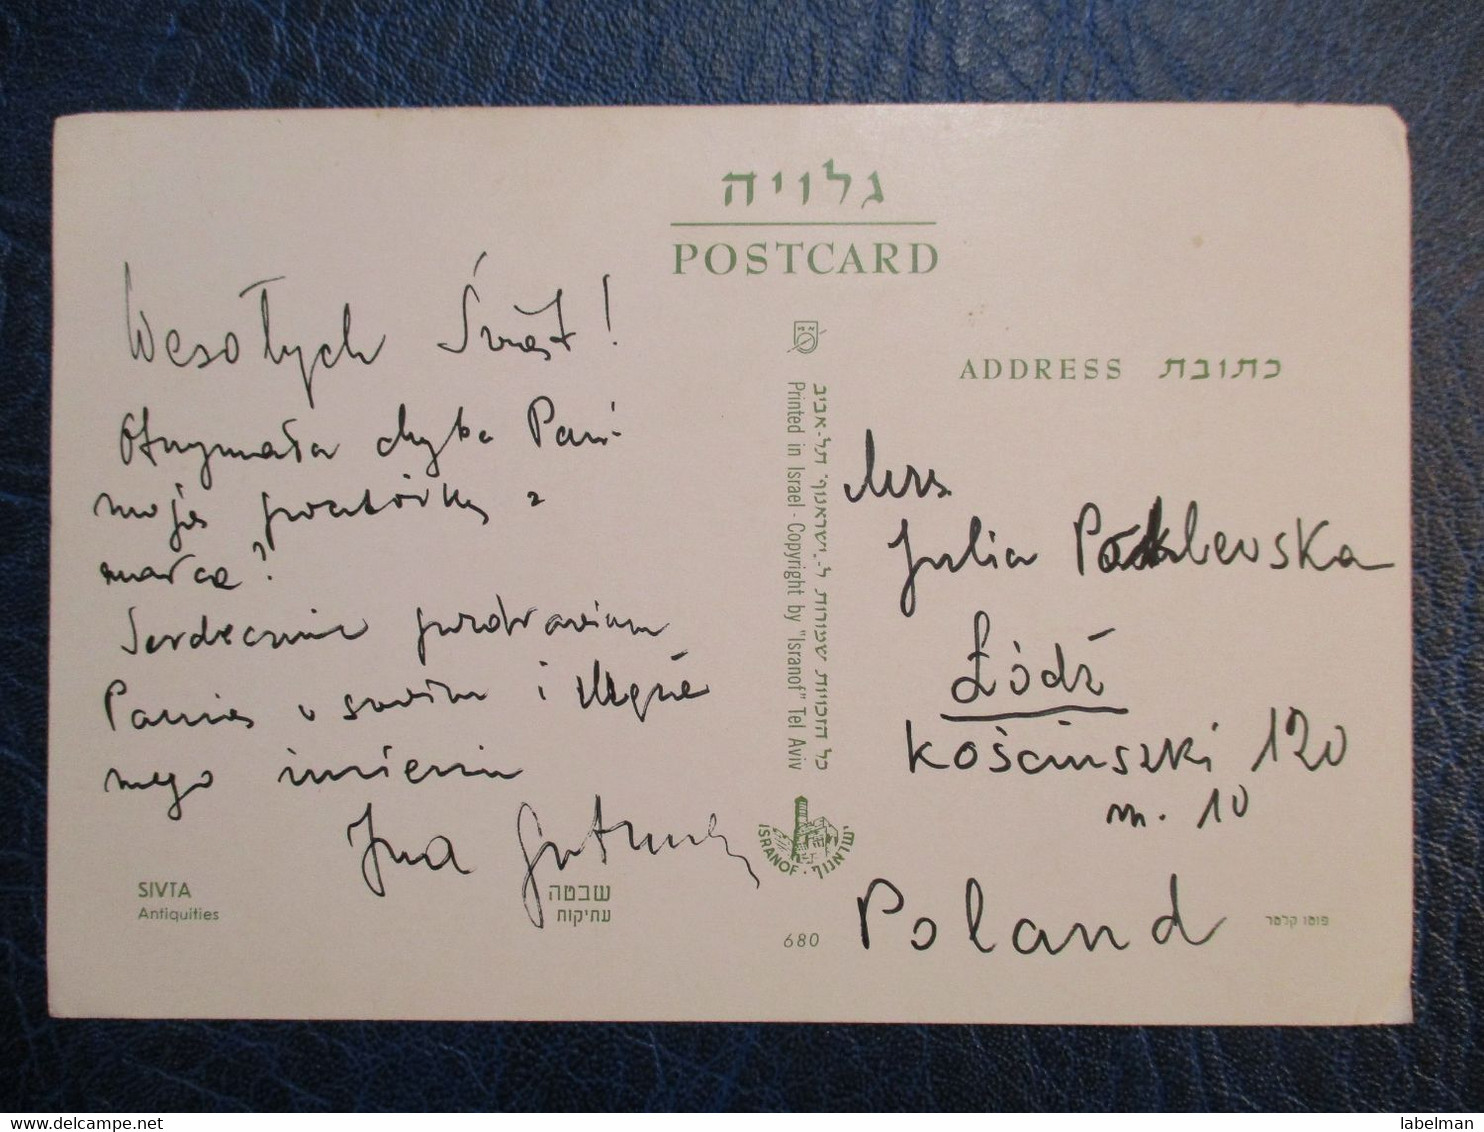 גלויה
POSTCARD
Wesołych Świąt!
Otrzymała chyba Pani
moją pocztówkę z
marca?
Serdecznie pozdrawiam
Panią w swoim i
mego imieniu
Ina
SIVTA
Antiquities
שבטה
עתיקות
680
כל הזכויות שמורות ל-"ישראנוף" תל-אביב
Printed in Israel - Copyright by "Isranof" Tel Aviv
ISRANOF · ישראנוף
ADDRESS כתובת
Mrs.
Julia
Łódź
Kościuszki 120
m. 10
Poland
פוטו קלטר
labelman
www.delcampe.net